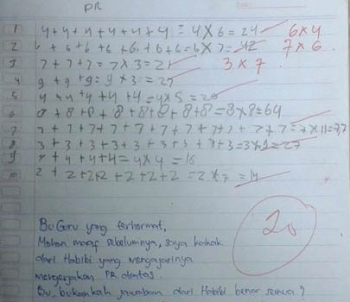 PR
1 4+4+4+4+4+4 = 4×6 = 24 6×4
2 6+6+6+6+6+6+6=6×7=42 7×6
3 7+7+7=7×3=21 3×7
4 9+9+9=9×3=27
5 4+4+4+4+4=4×5=20
6 8+8+8+8+8+8+8+8=8×8=64
7 7+7+7+7+7+7+7+7+7+7+7=7×11=77
8 3+3+3+3+3+3+3+3+3=3×9=27
9 4+4+4+4=4×4=16
2+2+2+2+2+2+2=2×7=14
20
Bu Guru yang terhormat,
Mohon maaf sebelumnya, saya kakak
dari Habibi yang mengajarinya
mengerjakan PR diatas.
Bu, bukankah jawaban dari Habibi benar semua?